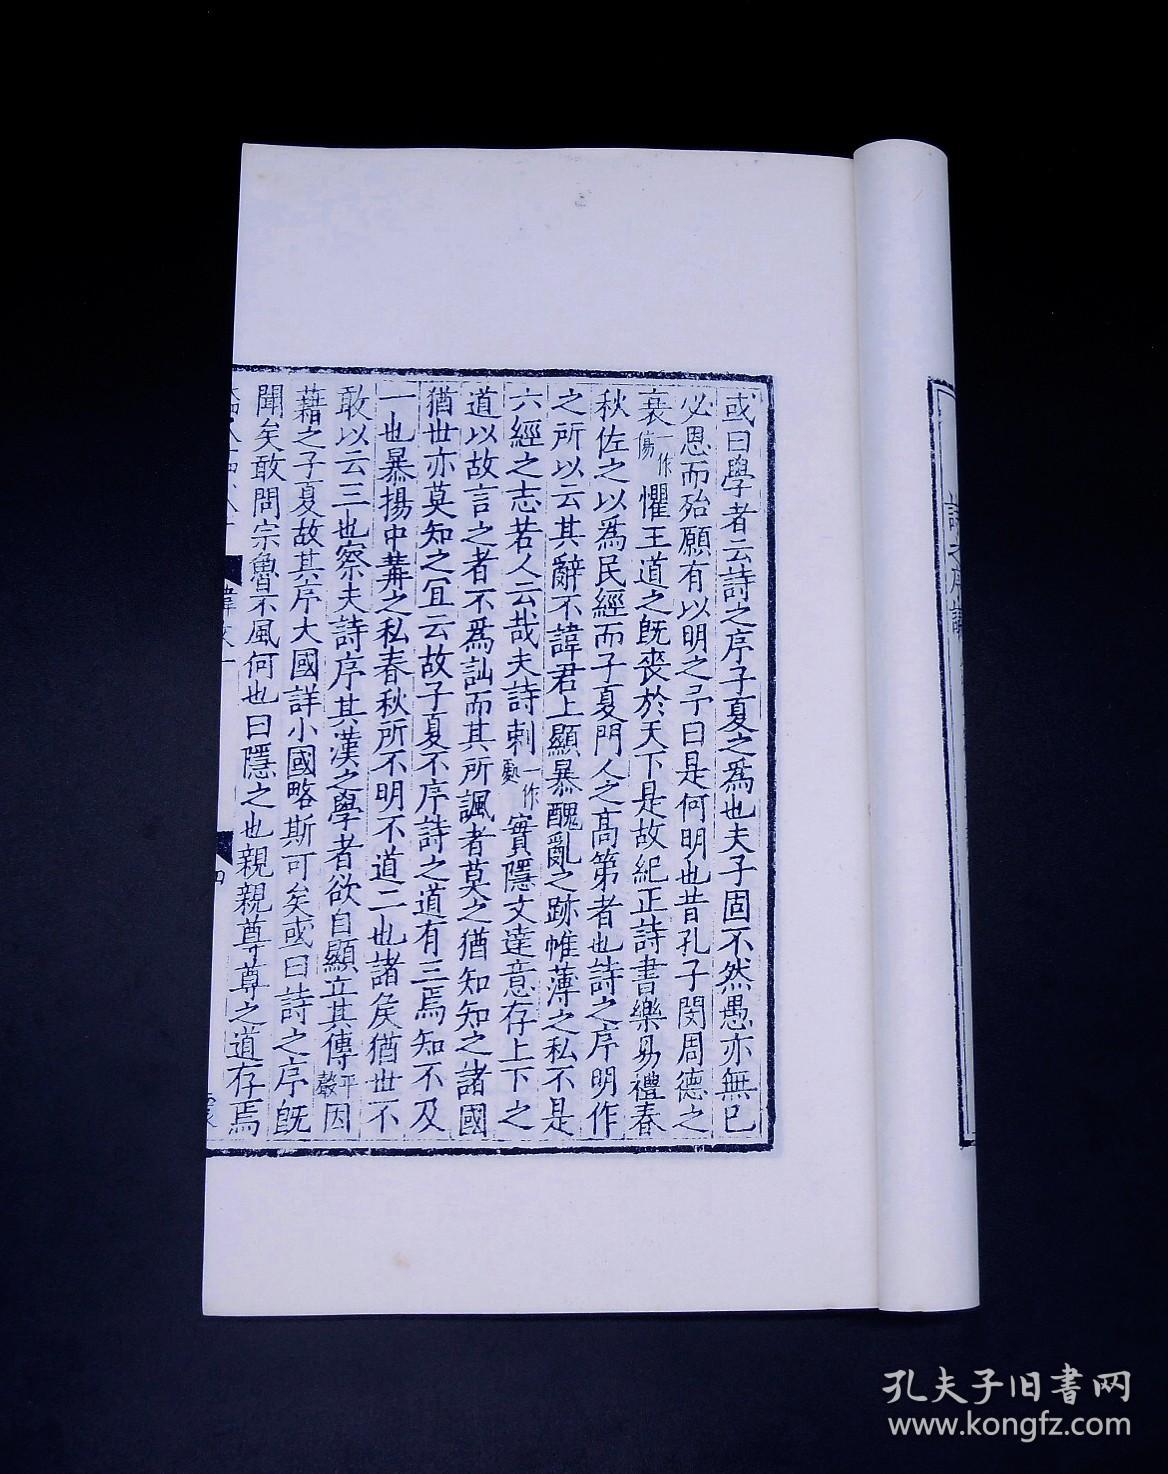 詩之序議
或曰學者云詩之序子夏之爲也夫子固不然愚亦無已
必恩而殆願有以明之予曰是何明也昔孔子閔周德之
衰一作傷懼王道之旣喪於天下是故紀正詩書樂易禮春
秋佐之以爲民經而子夏門人之高第者也詩之序明作
之所以云其辭不諱君上顯暴醜亂之跡帷薄之私不是
六經之志若人云哉夫詩刺一作實隱文達意存上下之
道以故言之者不爲訕而其所諷者莫之猶知知之諸國
猶世亦莫知之冝云故子夏不序詩之道有三焉知不及
一也暴揚中冓之私春秋所不明不道二也諸矦猶世不
敢以云三也察夫詩序其漢之學者欲自顯立其傳平聲因
藉之子夏故其序大國詳小國略斯可矣或曰詩之序旣
聞矣敢問宗魯不風何也曰隱之也親親尊尊之道存焉
四
孔夫子旧書网
www.kongfz.com